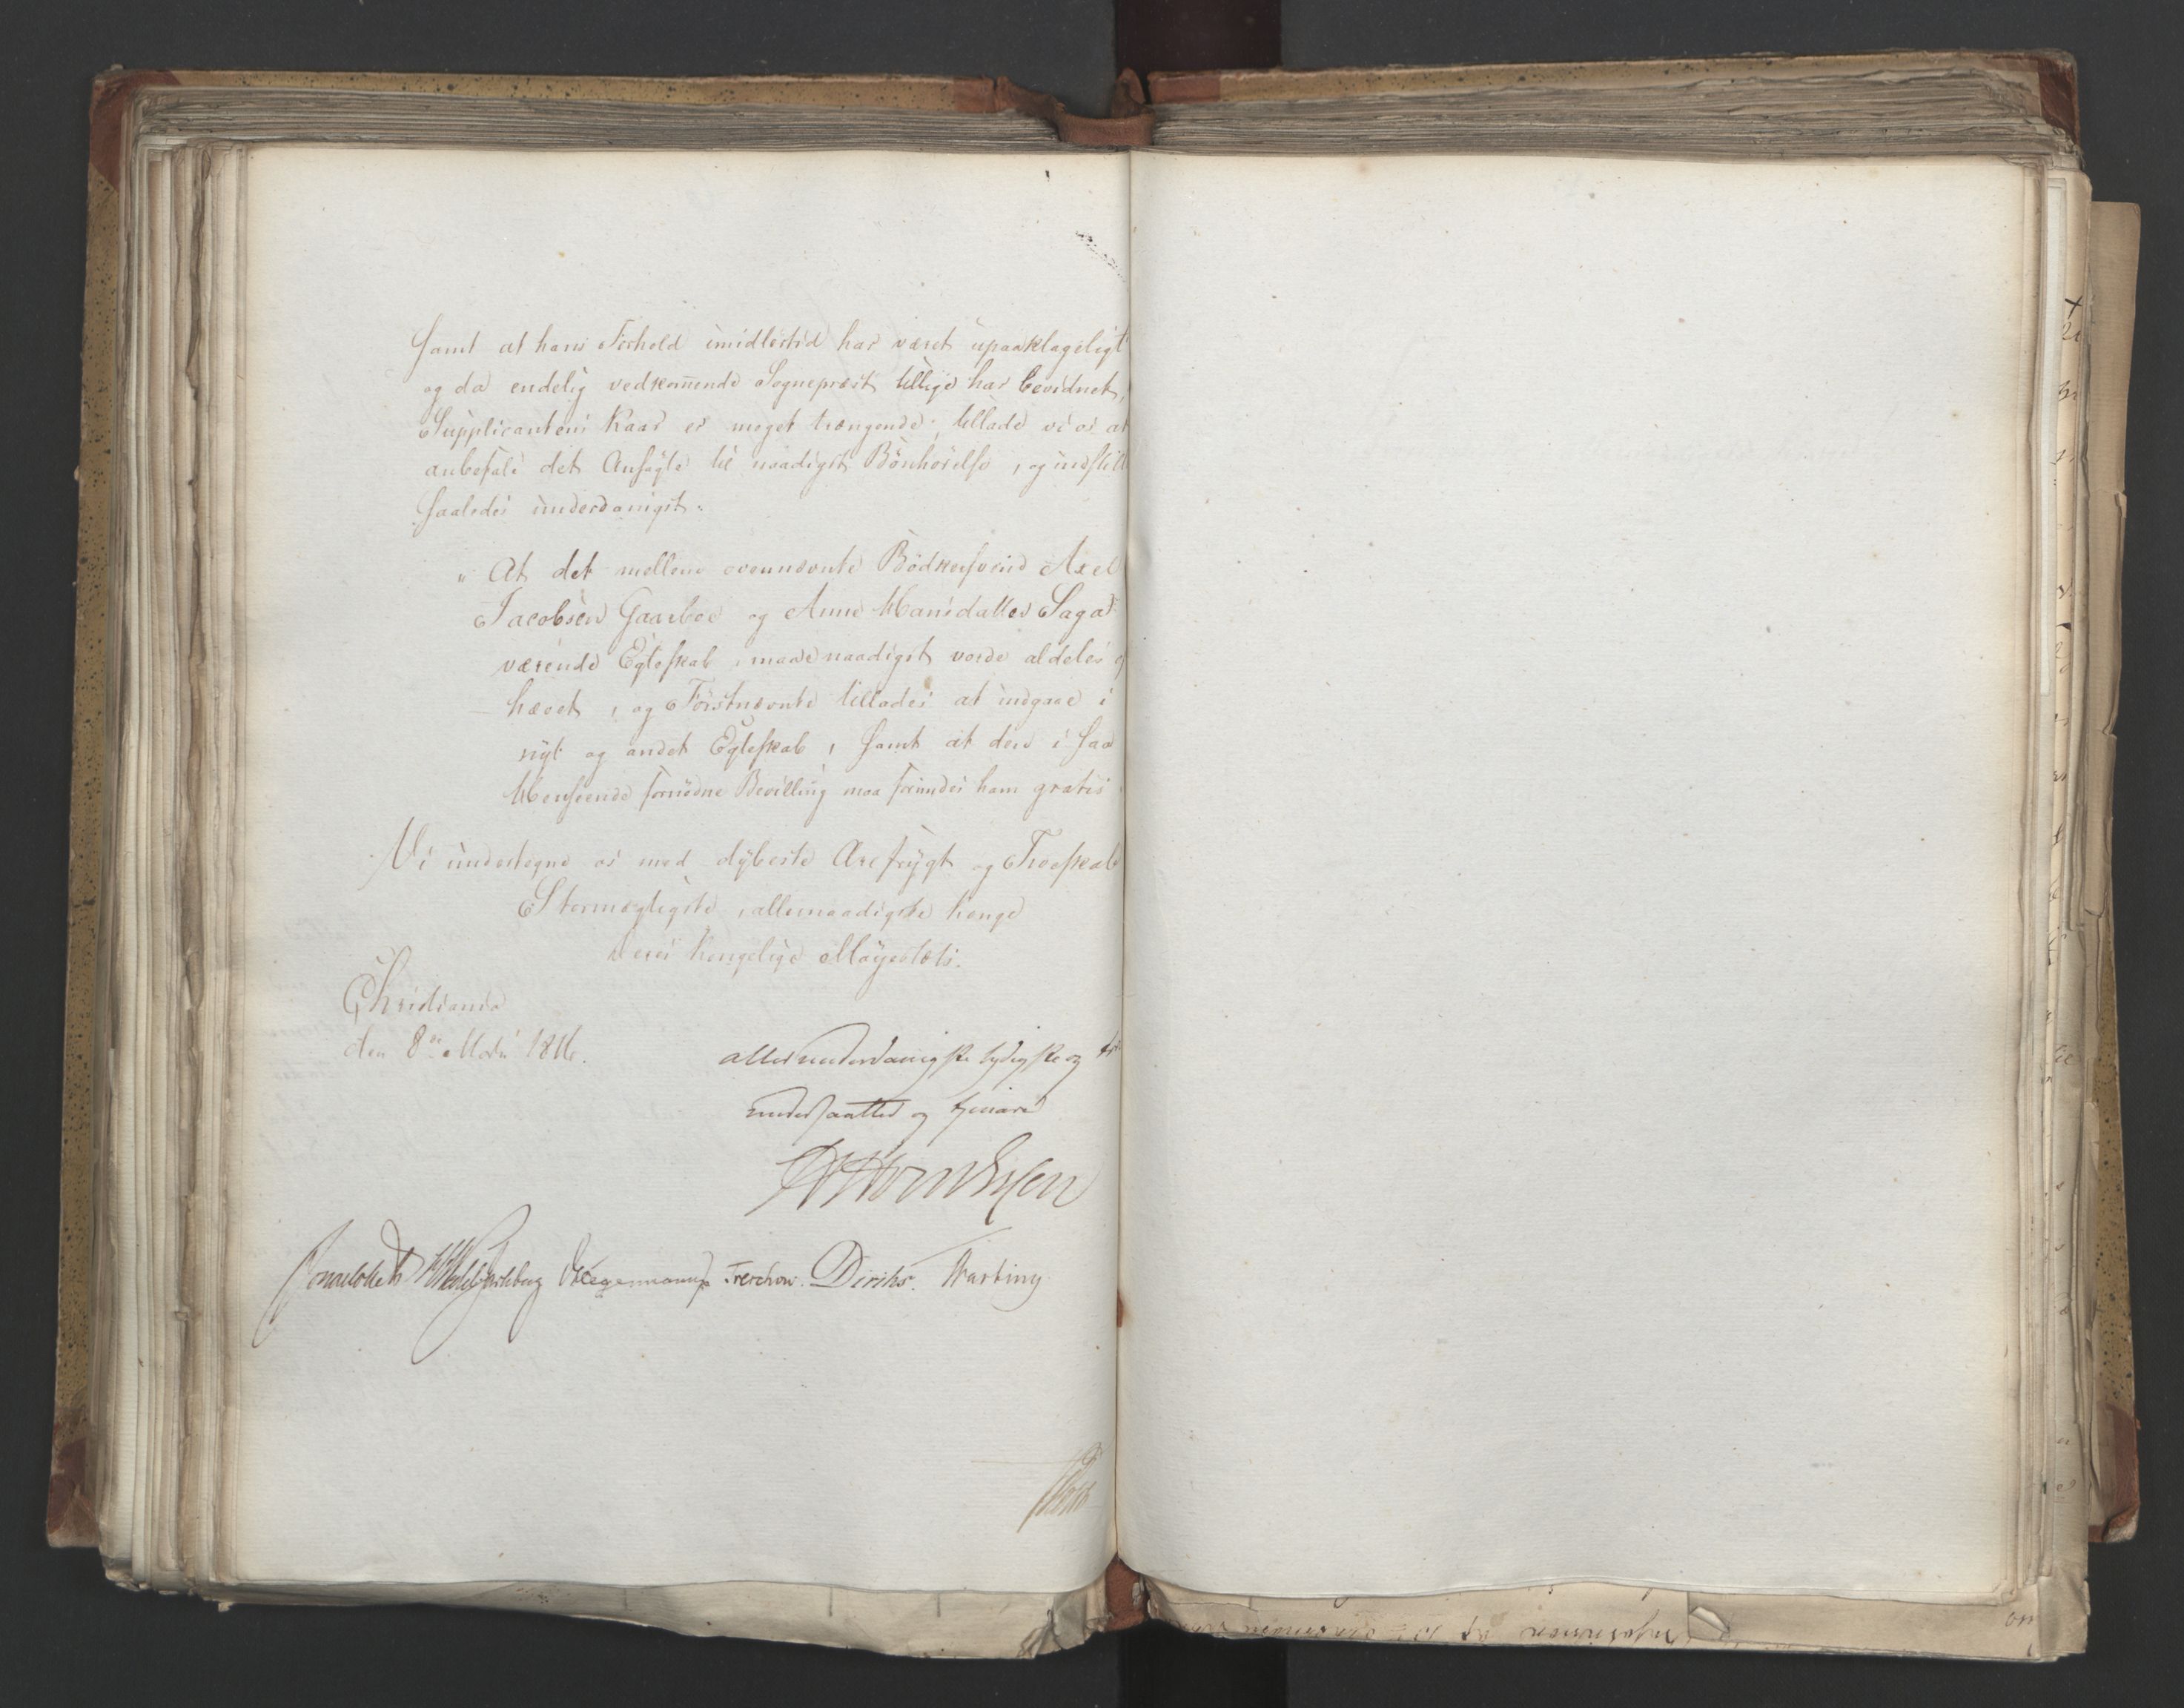 samt at hans Forhold imidlertid har været upaaklageligt
og da endelig vedkom̄ende Sognepræst tillige har bevidnet,
Supplicantens Kaar er meget trængende; tillade vi os at
anbefale det Ansøgte til naadigst Bönhörelse, og indstille
saaledes underdanigst:
„ At det mellem ovennævnte Bödkersvend Axel
Jacobsen Gaarboe og Anne Hansdatter Saga
værende Egteskab, maae naadigst vorde aldeles op
hævet, og Förstnævnte tillades at indgaae i
nyt og andet Egteskab, samt at den i saa
Henseende fornödne Bevilling maa forundes ham gratis
Vi undertegne os med dybeste Ærefrygt og Troeskab
Stormægtigste, allernaadigste Konge
Deres Kongelige Majestæts.
Christiania
den 8de Martz 1816.
allerunderdanigste lydigste og
undersaatter og tjenere
Sommerhielm Wedel Jarlsberg Hegermann Treschow. Diriks. Hartung